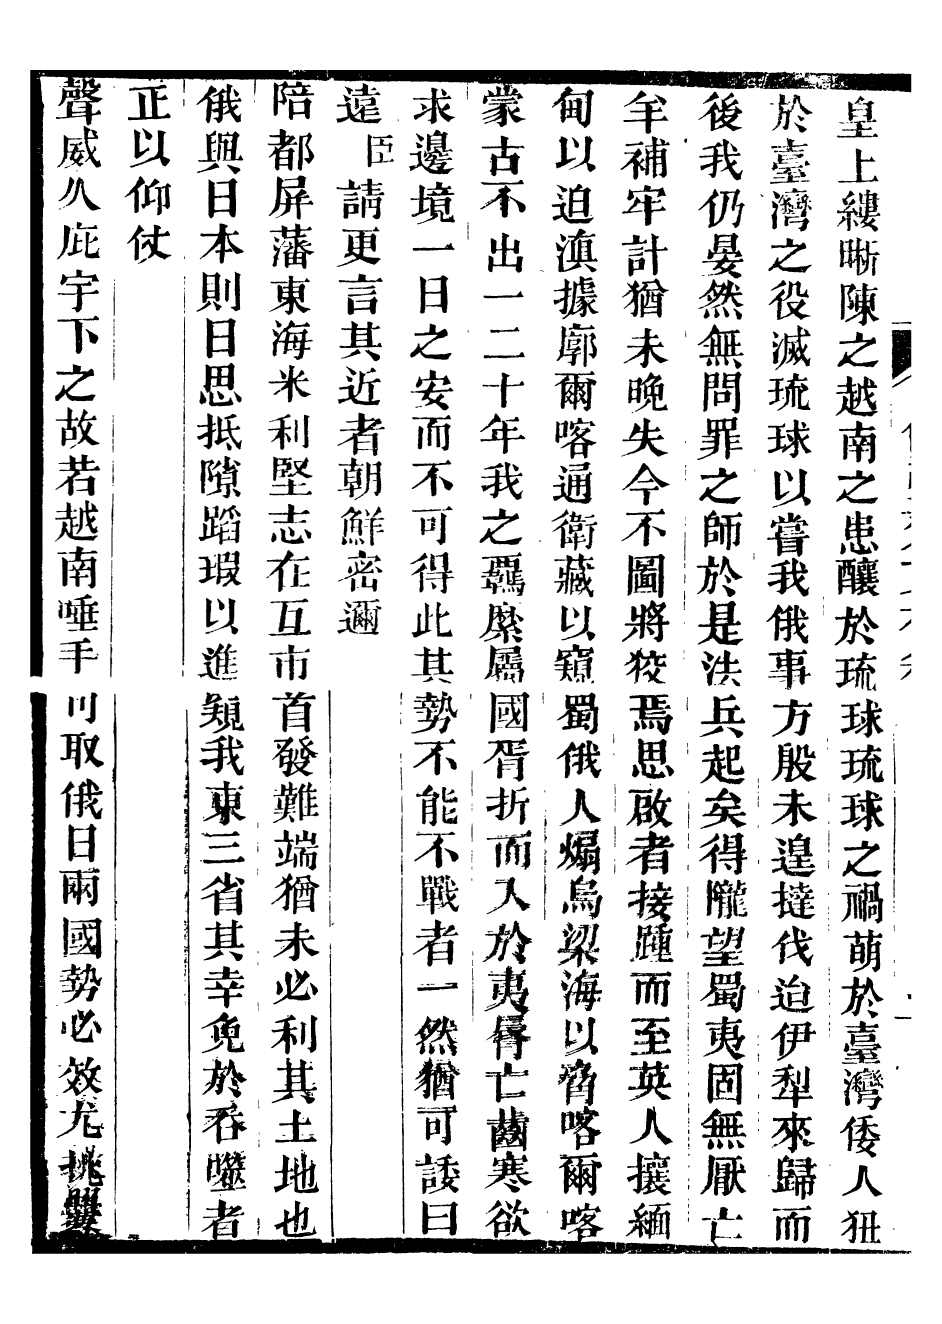 皇上縷晰陳之越南之患釀於琉球琉球之禍萌於臺灣倭人狃
於臺灣之役滅琉球以嘗我俄事方殷未遑撻伐迨伊犁來歸而
後我仍晏然無問罪之師於是法兵起矣得隴望蜀夷固無厭亡
羊補牢計猶未晚失今不圖將狡焉思啟者接踵而至英人攘緬
甸以迫滇據廓爾喀通衛藏以窺蜀俄人煽烏梁海以脅喀爾喀
蒙古不出一二十年我之羈縻屬國胥折而入於夷脣亡齒寒欲
求邊境一日之安而不可得此其勢不能不戰者一然猶可諉曰
遠臣請更言其近者朝鮮密邇
陪都屏藩東海米利堅志在互市首發難端猶未必利其土地也
俄與日本則日思抵隙蹈瑕以進窺我東三省其幸免於吞噬者
正以仰仗
聲威久庇宇下之故若越南唾手可取俄日兩國勢必效尤挑釁